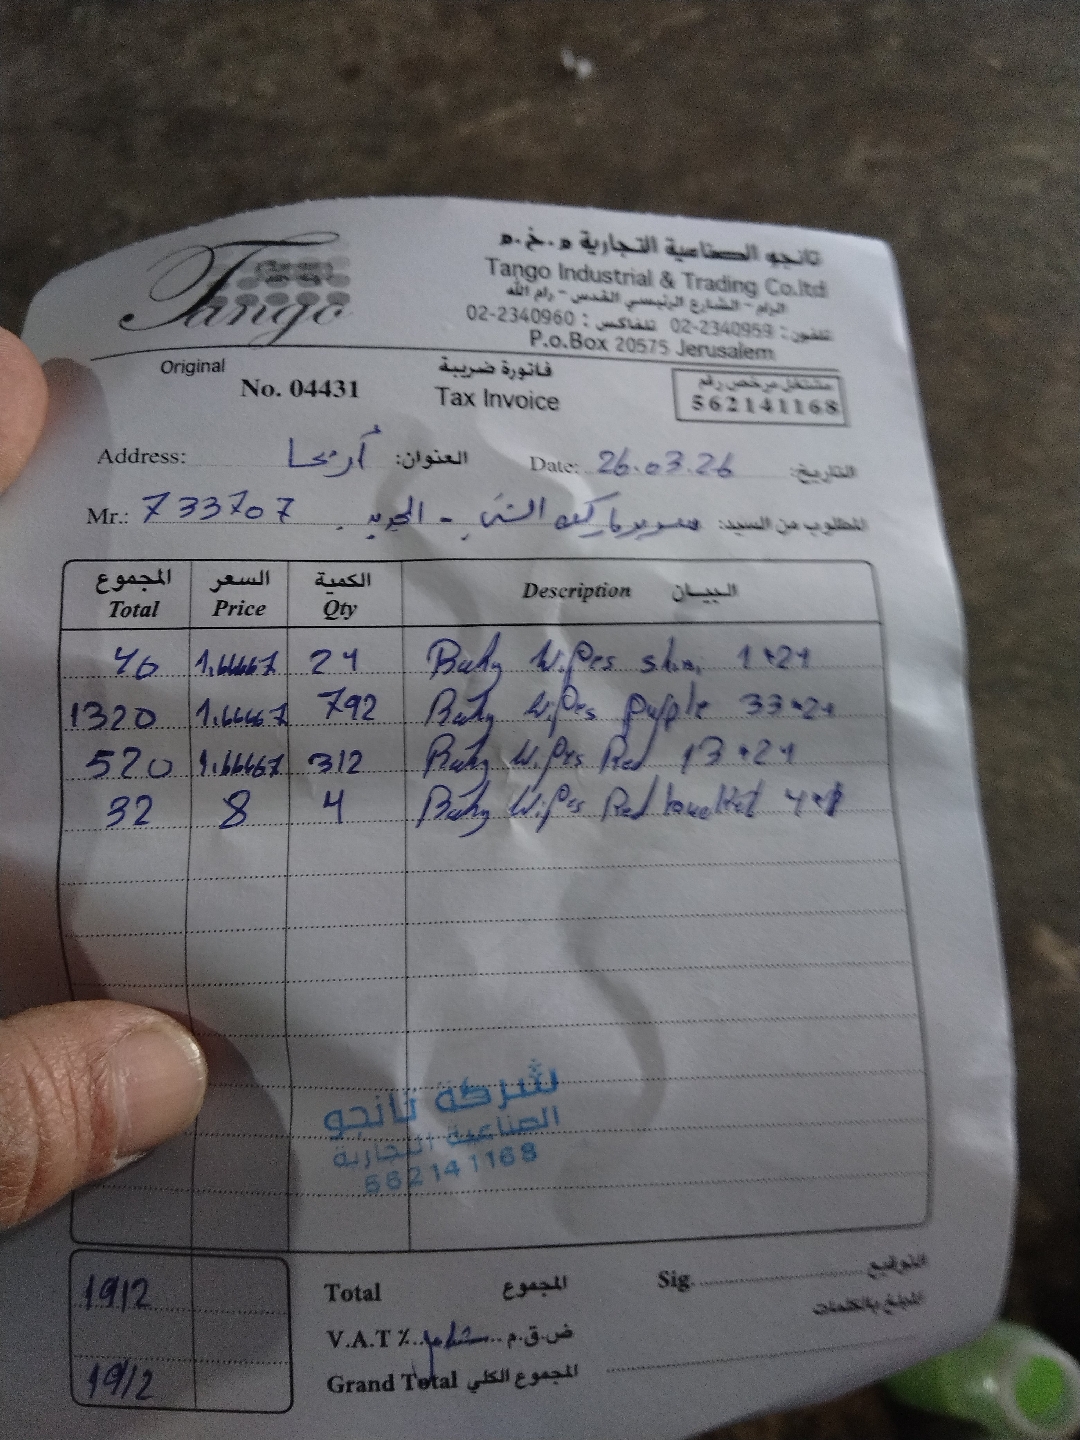 Tango
تانجو الصناعية التجارية م.خ.م
Tango Industrial & Trading Co.ltd
الرام - الشارع الرئيسي القدس - رام الله
تلفون: 02-2340959 تلفاكس: 02-2340960
P.o.Box 20575 Jerusalem
Original
No. 04431
فاتورة ضريبة
Tax Invoice
مشتغل مرخص رقم
562141168
Address: أريحا العنوان:
Date: 26.03.26 التاريخ:
Mr.: 733707 المطلوب من السيد: سوبر ماركت
المجموع السعر الكمية البيان
Total Price Qty Description
1.66667 24 Baby Wipes 1*24
1320 1.66667 792 Baby Wipes 33*24
520 1.66667 312 Baby Wipes Red 13*24
32 8 4 Baby Wipes Red
شركة تانجو
الصناعية التجارية
562141168
1912 Total المجموع Sig. التوقيع
V.A.T % ض.ق.م المبلغ بالكلمات
1912 Grand Total المجموع الكلي